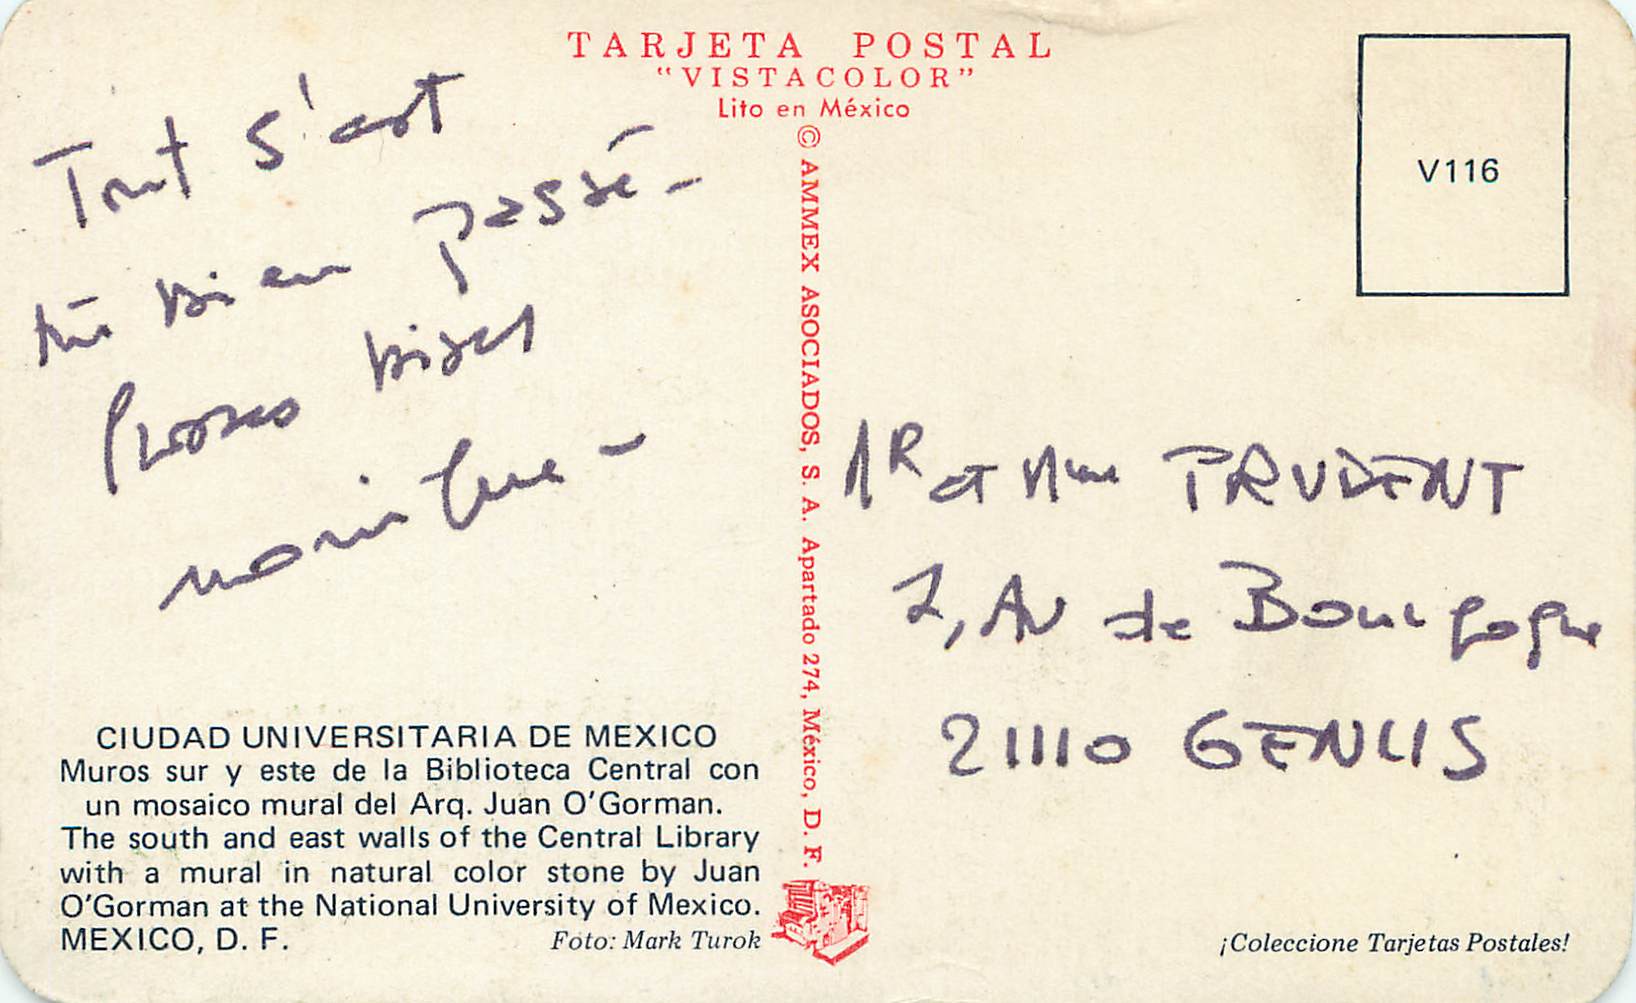 TARJETA POSTAL
"VISTACOLOR"
Lito en México
© AMMEX ASOCIADOS, S. A. Apartado 274, México, D. F.
V116
Tout s'est
très bien passé -
Grosses bises
monique -
MR et Mme PRUDENT
2, AV de Bourgogne
21110 GENLIS
CIUDAD UNIVERSITARIA DE MEXICO
Muros sur y este de la Biblioteca Central con
un mosaico mural del Arq. Juan O'Gorman.
The south and east walls of the Central Library
with a mural in natural color stone by Juan
O'Gorman at the National University of Mexico.
MEXICO, D. F. Foto: Mark Turok
¡Coleccione Tarjetas Postales!